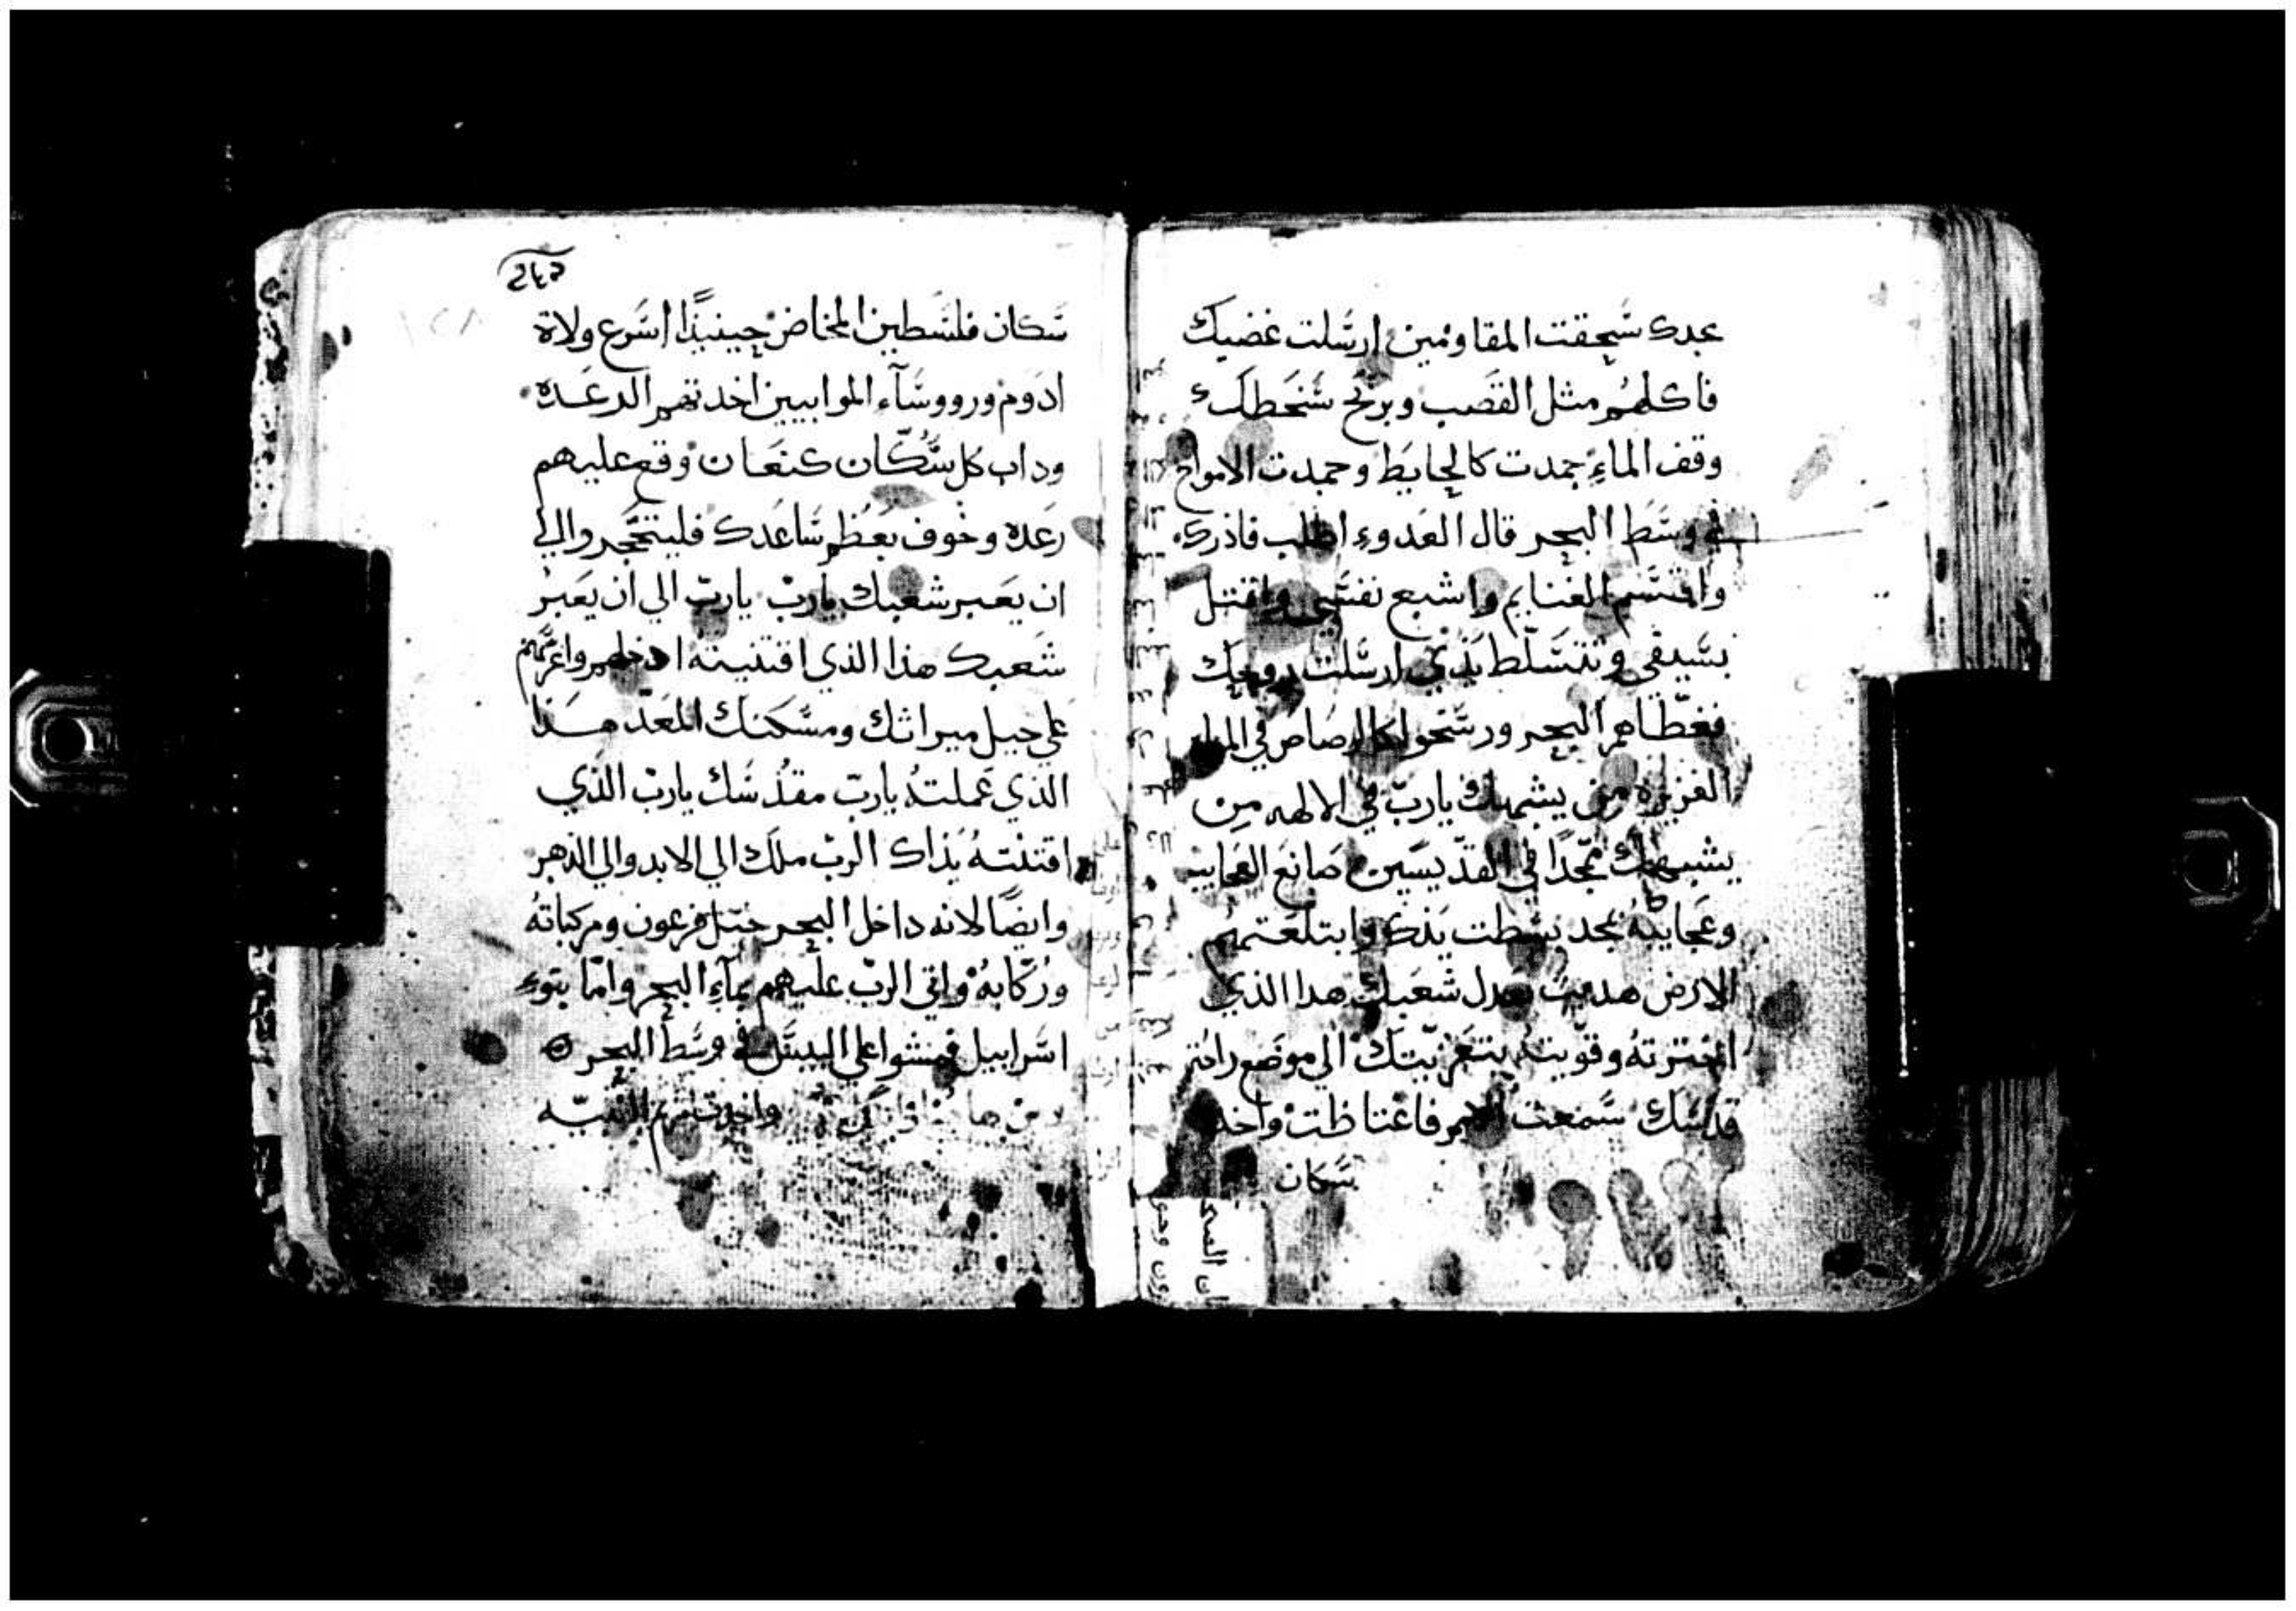 مجدك سحقت المقاومين ارسلت غضبك
فاكلهم مثل القصب وبريح سخطك
وقف الماء جمدت كالحايط وجمدت الامواج
في وسط البحر قال العدوء اطلب فادرك
واقتسم الغنايم واشبع نفسي واقتل
بسيفي وتتسلط يدي ارسلت روحك
فغطاهم البحر ورسخوا كالرصاص في المياه
الغزيره من يشبهك يارب في الالهه من
يشبهك ممجدا في القديسين صانع العجايب
وعجايبه بمجد بسطت يدك وابتلعتهم
الارض هديت بعدل شعبك هدا الذي
اخترته وقويته بتعزيتك الي موضع راحة
قدسك سمعت الامم فاغتاظت واخد
سكان
سكان فلسطين المخاض حينيذا اسرع ولاة
ادوم ورووساء الموابيين اخدتهم الرعده
وداب كل سكان كنعان وقع عليهم
رعده وخوف بعظم ساعدك فليتحجر والي
ان يعبر شعبك يارب يارب الي ان يعبر
شعبك هذا الذي اقتنيته ادخلهم واغرسهم
علي جبل ميراثك ومسكنك المعد هذا
الذي عملته يارب مقدسك يارب الذي
اقتنته يداك الرب ملك الي الابد والي الدهر
وايضا لانه داخل البحر خيل فرعون ومركباته
وركابه واتي الرب عليهم بماء البحر واما بنوء
اسراييل فمشوا علي اليبس في وسط البحر
واخدت مريم النبيه